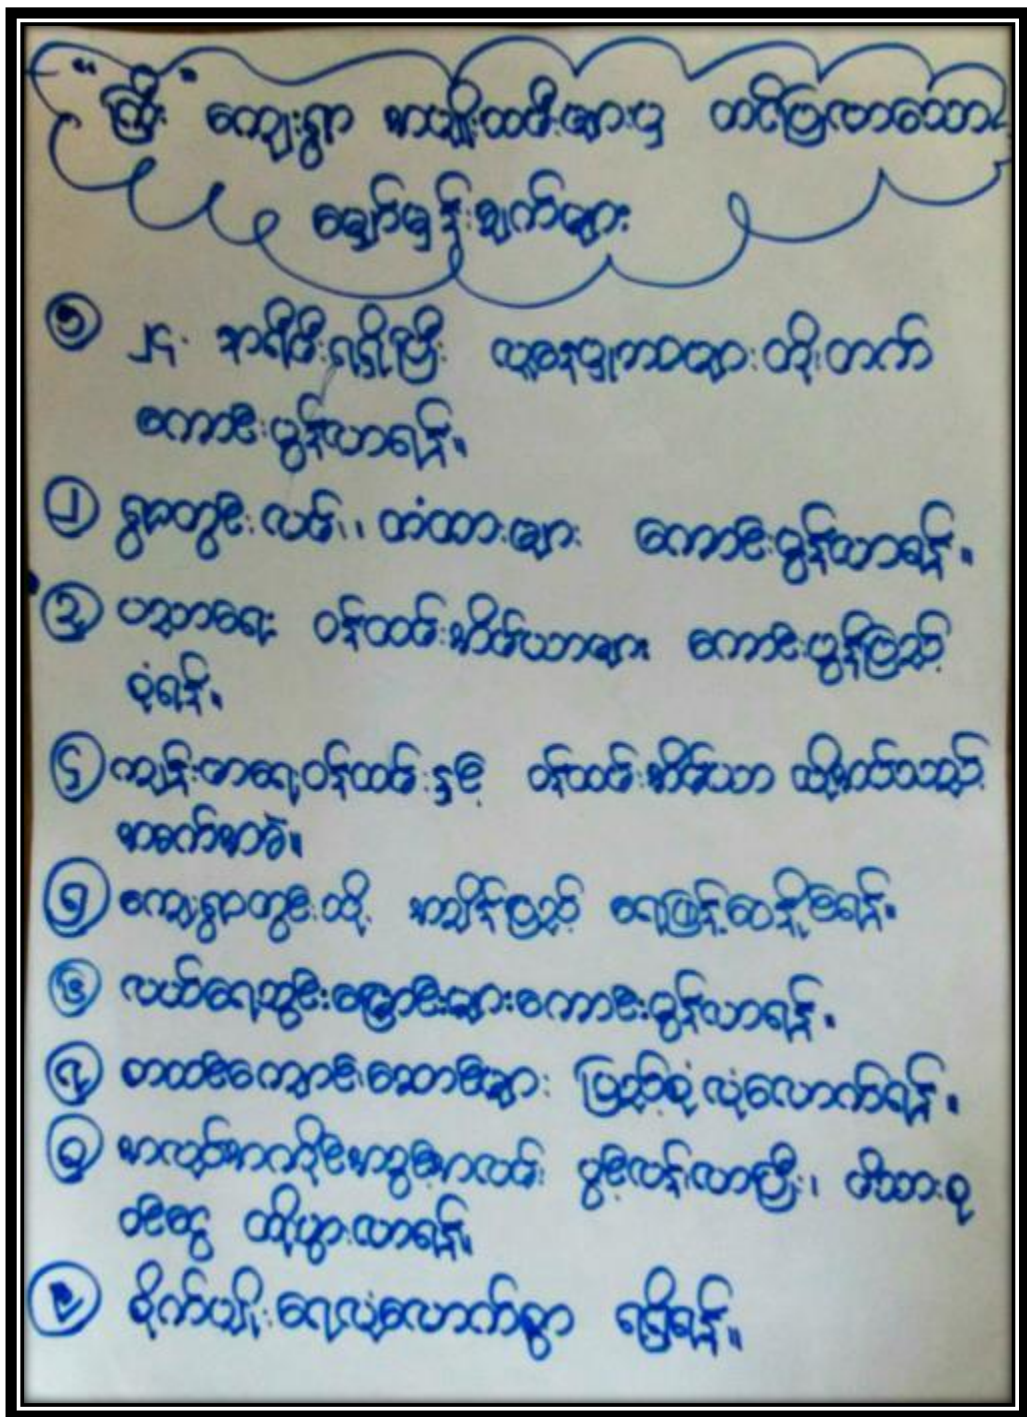 "ကြီး" ကျေးရွာ အမျိုးသမီးများမှ တင်ပြလာသော
မျှော်မှန်းချက်များ
၁ ၂၄ နာရီမီးရရှိပြီး လူနေမှုဘဝများတိုးတက်
ကောင်းမွန်လာရန်။
၂ ရွာတွင်းလမ်း၊ တံတားများ ကောင်းမွန်လာရန်။
၃ ပညာရေး ဝန်ထမ်းအိမ်ယာများ ကောင်းမွန်ပြည့်
စုံရန်။
၄ ကျန်းမာရေးဝန်ထမ်းနှင့် ဝန်ထမ်းအိမ်ယာ လိုအပ်သည့်
အခက်အခဲ။
၅ ကျေးရွာတွင်းသို့ အချိန်ပြည့် ရေဖြန့်ဝေနိုင်ရန်။
၆ လယ်ရေသွင်းမြောင်းများကောင်းမွန်လာရန်။
၇ စာသင်ကျောင်းဆောင်များ ပြည့်စုံလုံလောက်ရန်။
၈ အလုပ်အကိုင်အခွင့်အလမ်း ပွင့်လန်းလာပြီး၊ မိသားစု
ဝင်ငွေ တိုးပွားလာရန်။
၉ စိုက်ပျိုးရေလုံလောက်စွာ ရရှိရန်။